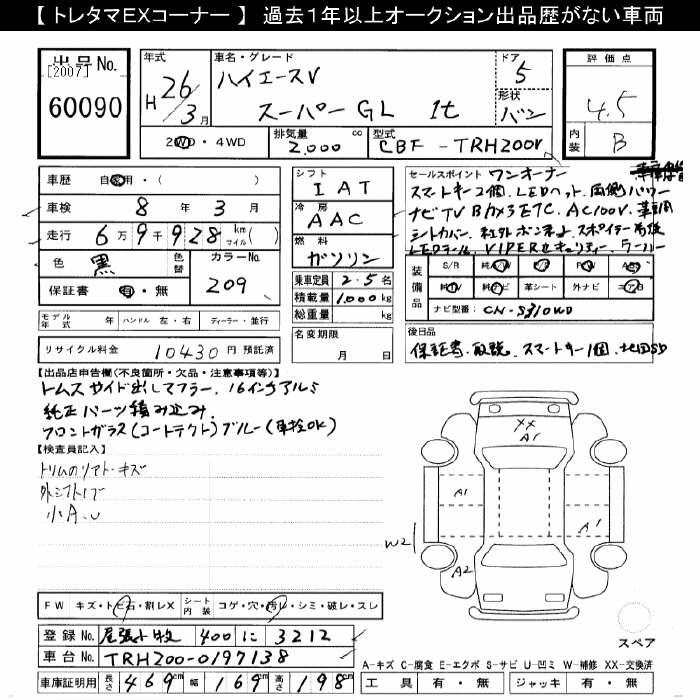 【 トレタマEXコーナー 】 過去１年以上オークション出品歴がない車両
出品No.
[2007]
60090
年式
H 26/3月
車名・グレード
ハイエースV
スーパーGL 1t
ドア
5
形状
バン
評価点
4.5
内装
B
2WD・4WD
排気量
2.000 cc
型式
CBF-TRH200V
車歴 自家用・( )
車検 8年 3月
走行 6万9千928 km マイル( )
色 黒 色替
カラーNo.
209
保証書 有・無
モデル年式 年 ハンドル 左・右 ディーラー・並行
リサイクル料金 10430円 預託済
シフト
I AT
冷房
AAC
燃料
ガソリン
乗車定員 2.5名
積載量 1.000kg
総重量 kg
名変期限
月 日
セールスポイント ワンオーナー
スマートキー2個、LEDヘット、両側パワー
ナビTV Bカメラ ETC、AC100V、
シートカバー、 スポイラー
LEDテール、VIPERセキュリティー、
装備品
S/R 純A/W P/S P/W A/B
純TV 純ナビ 革シート 外ナビ エアロ
ナビ型番: CN-S310WD
後日品
保証書、取説、スマートキー1個、地図SD
【出品店申告欄(不良箇所・欠品・注意事項等)】
トムス サイド出しマフラー、16インチアルミ
純正パーツ積み込み、
フロントガラス(コートテクト)ブルー(車検OK)
【検査員記入】
トリムのリアト・キズ
外シフトノブ
小A、U
XX
A1
A1
A1
W2
A2
スペア
FW キズ・トビ石・割レX シート内装 コゲ・穴・汚レ・シミ・破レ・スレ
登録No. 尾張小牧 400 に 3212
車台No. TRH200-0197138
車庫証明用 長さ 469cm 幅 169cm 高さ 198cm
A-キズ C-腐食 E-エクボ S-サビ U-凹ミ W-補修 XX-交換済
工具 有・無 ジャッキ 有・無